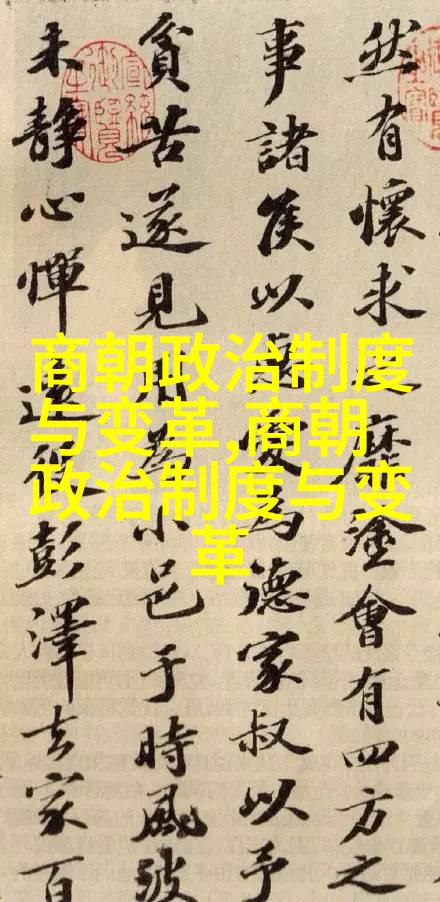 商朝政治制度
与变革,商朝
政治制度与变
革
然有懷求之靡塗會有四方之
事諸侯以惠愛為德家叔以予
貧苦遂見用為小邑于時風波
未靜心憚遠役彭澤去家百